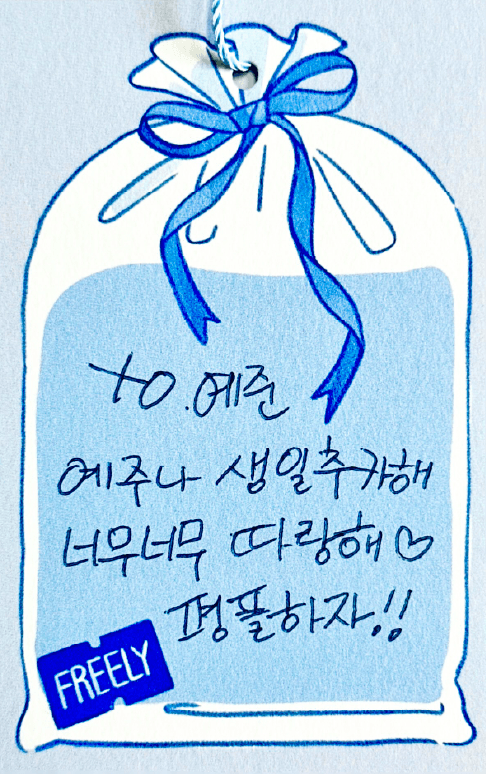 to. 예준
예주나 생일추카해
너무너무 따랑해♡
평플하자!!
FREELY